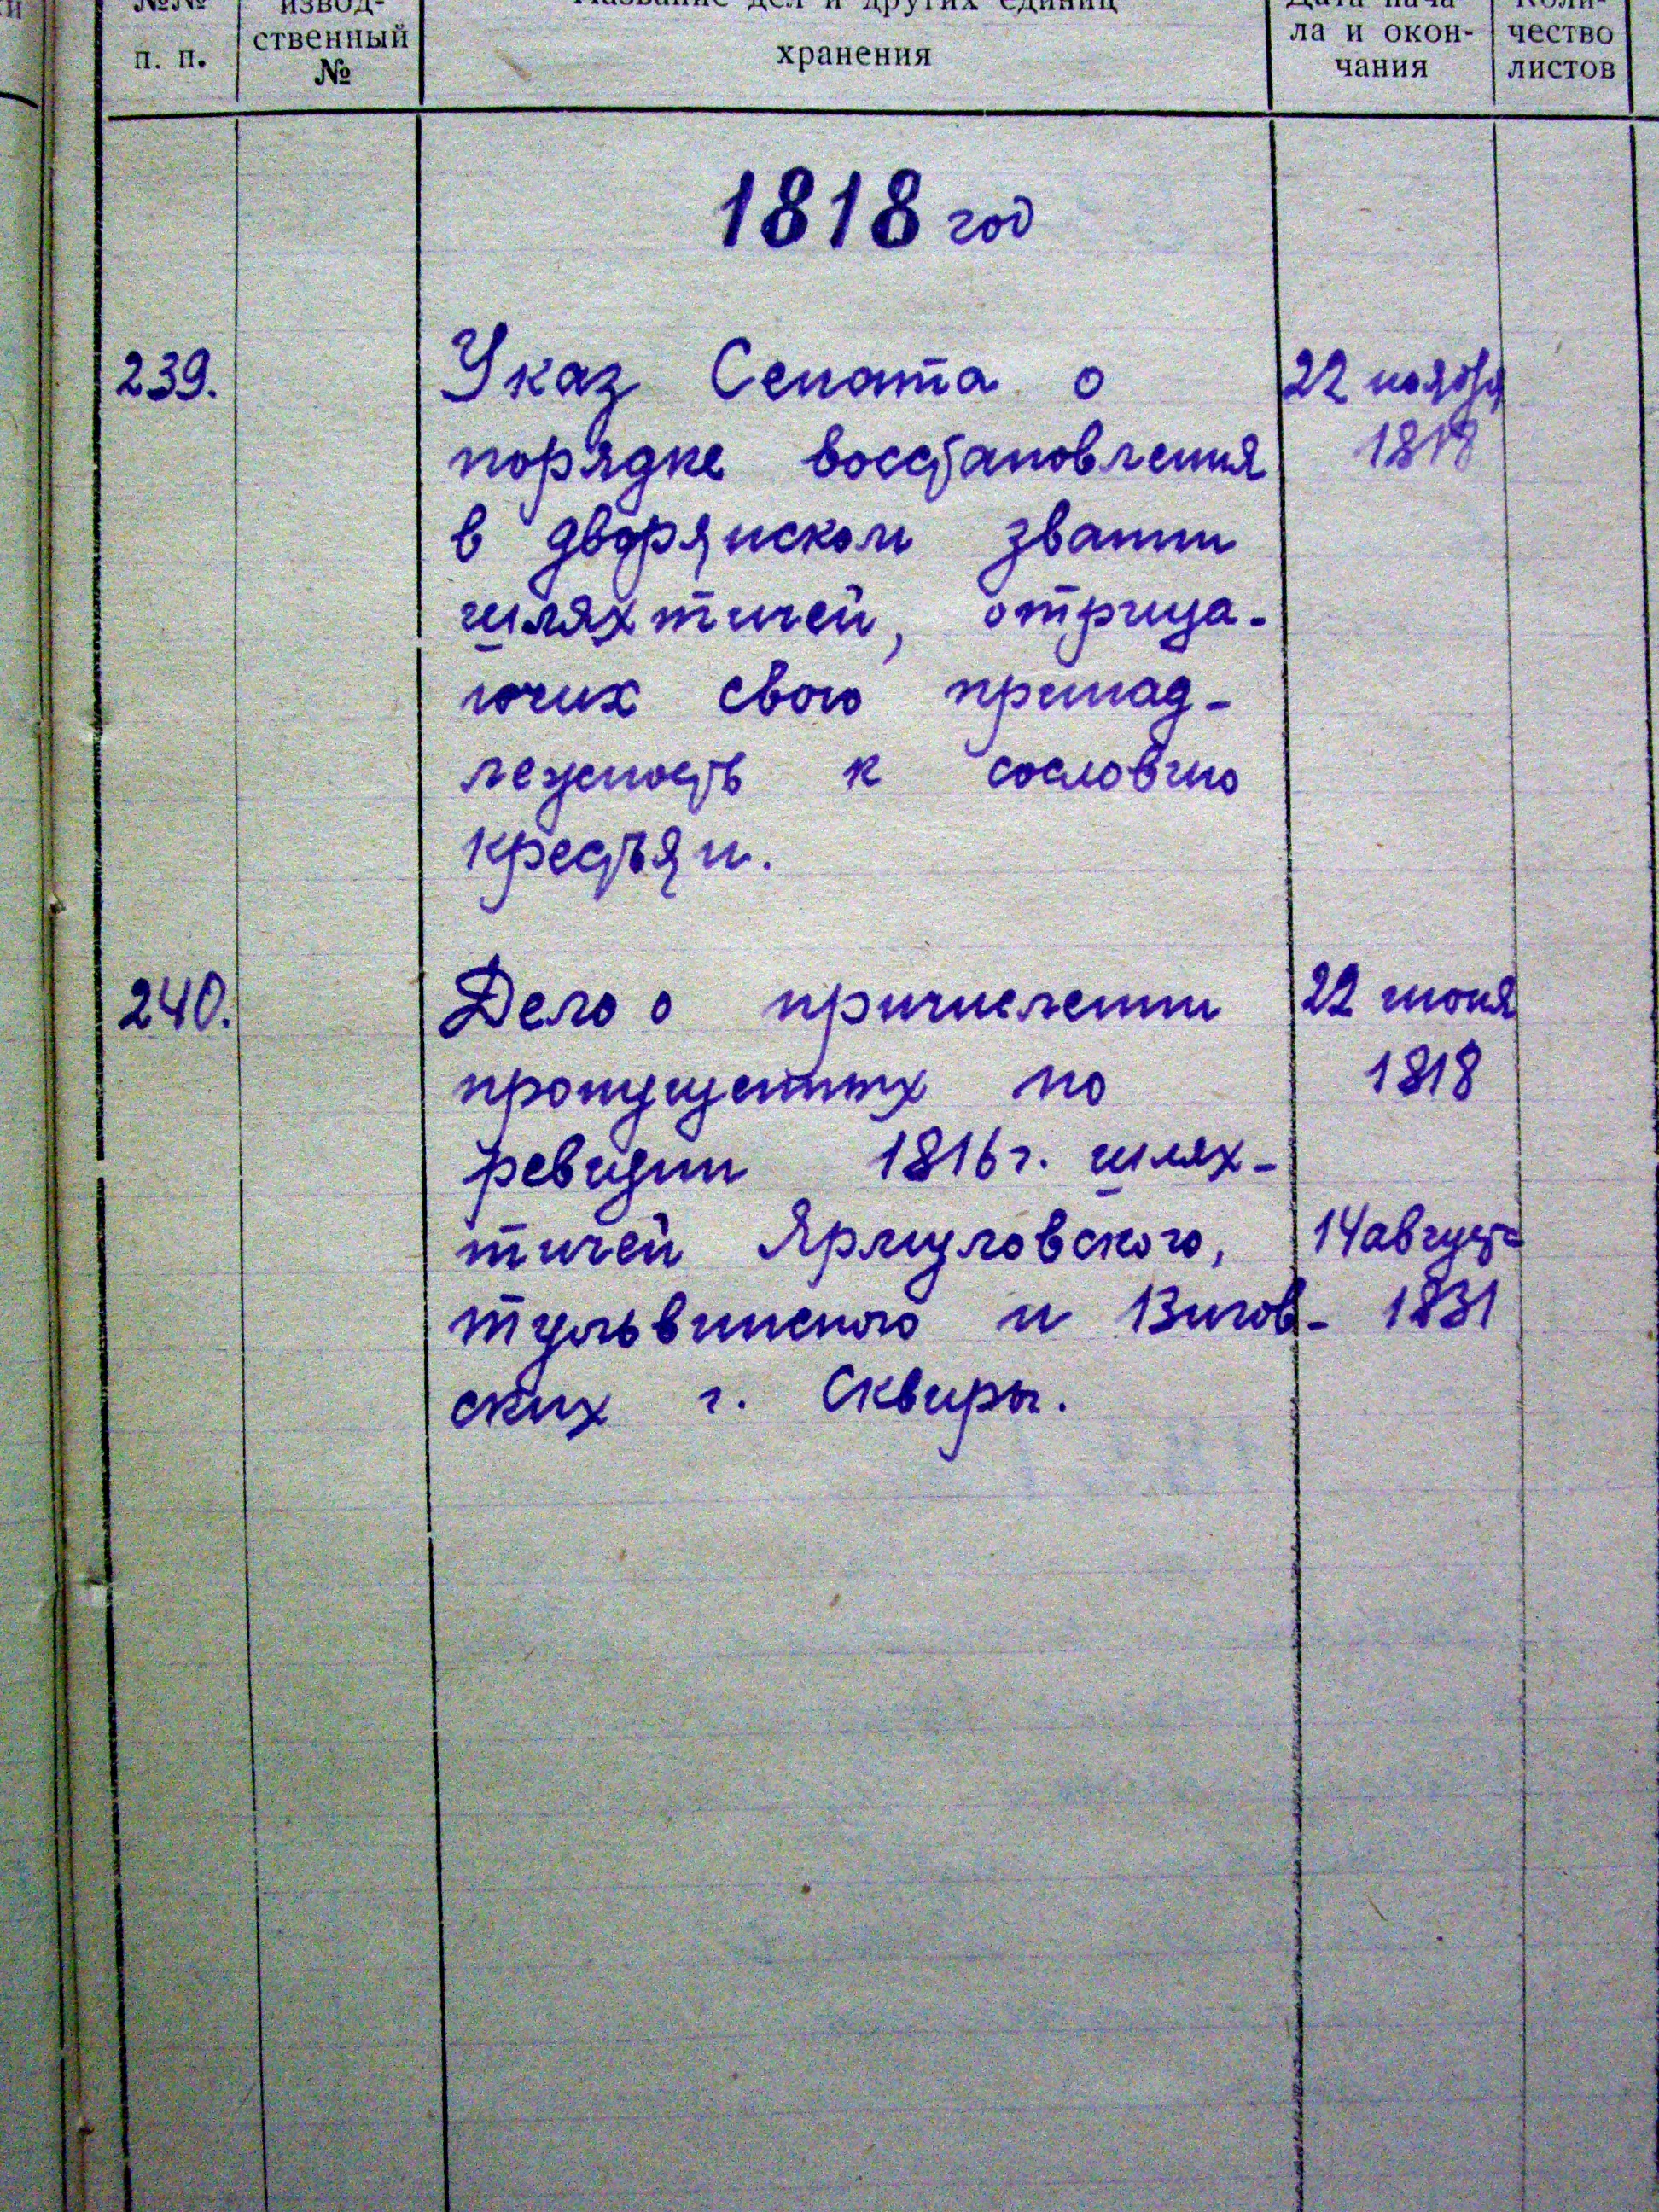 №№ извод- Название дел и других единиц Дата нача- Коли-
п. п. ственный хранения ла и окон- чество
№ чания листов
1818 год
239. Указ Сената о 22 ноября
порядке восстановления 1818
в дворянском звании
шляхтичей, отрица-
ючих свою принад-
лежность к сословию
крестьян.
240. Дело о причислении 22 июня
пропущенных по 1818
ревизии 1816 г. шлях-
тичей Ярмуловского, 14 август
тульвинского и Вигов- 1831
ских г. Сквиры.